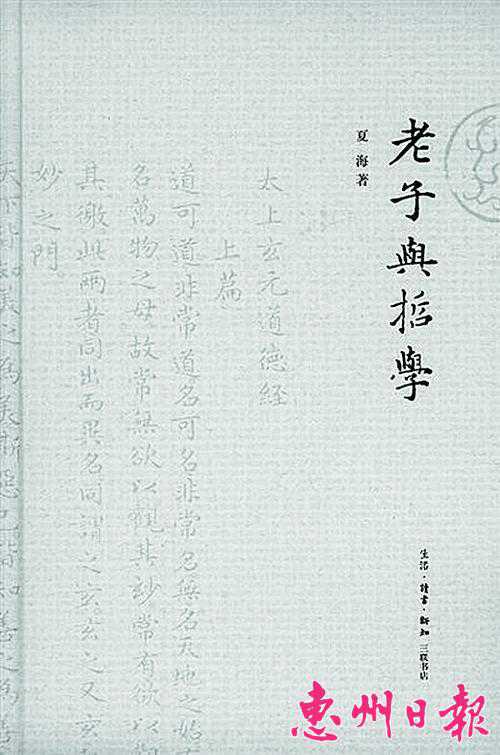 老子與哲學
夏海著
太上玄元道德經
上篇
道可道非常道名可名非常名無名天地之始
名萬物之母故常無欲以觀其妙常有欲以觀
其徼此兩者同出而異名同謂之玄玄之又玄
妙之門
天下皆知美之為美斯惡已皆知善之為善
生活·讀書·新知 三联书店
惠州日報